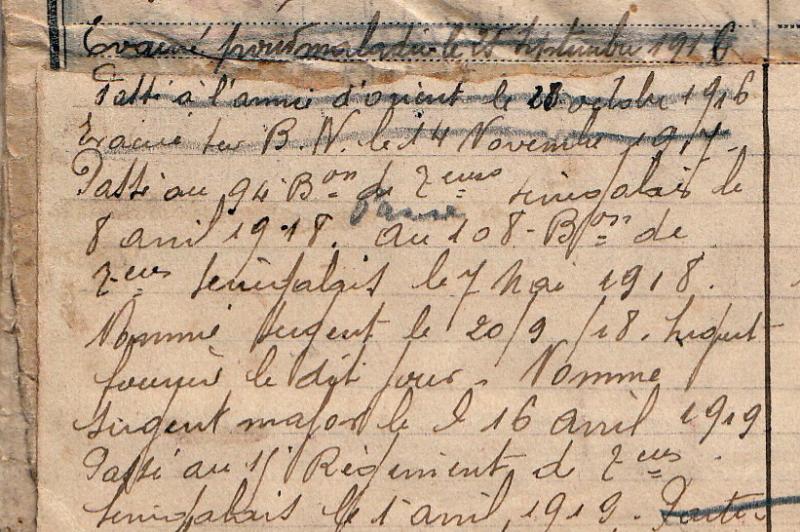 Evacué pour maladie le 25 septembre 1916
Passé à l'armée d'orient le 28 octobre 1916
Evacué sur B.N. le 14 Novembre 1917.
Passé au 94 Bon de Teurs senegalais le
8 avril 1918. Passé au 108 Bon de
Teurs senegalais le 7 Mai 1918.
Nommé sergent le 20/9/18. Sergent
fourrier le dit jour. Nommé
sergent major le 16 avril 1919
Passé au Régiment de Teurs
senegalais le 1 avril 1919.